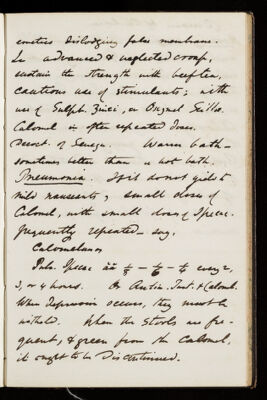 emetics dislodging false membrane.
In advanced & neglected croup,
sustain the strength with beef tea,
cautious use of stimulants; with
use of Sulph. Zinci, or Oxymel Scillae.
Calomel in often repeated doses.
Decoct. of Senega. Warm bath -
sometimes better than a hot bath.
Pneumonia. If it do not yield to
mild nauseants, small doses of
Calomel, with small doses of Ipecac.
frequently repeated - say,
Calomelanos
Pulv. Ipecac āā every 2,
3, or 4 hours. Or Antim. Tart. & Calomel.
When depression occurs, they must be
withheld. When the stools are fre-
quent, & green from the Calomel,
it ought to be discontinued.